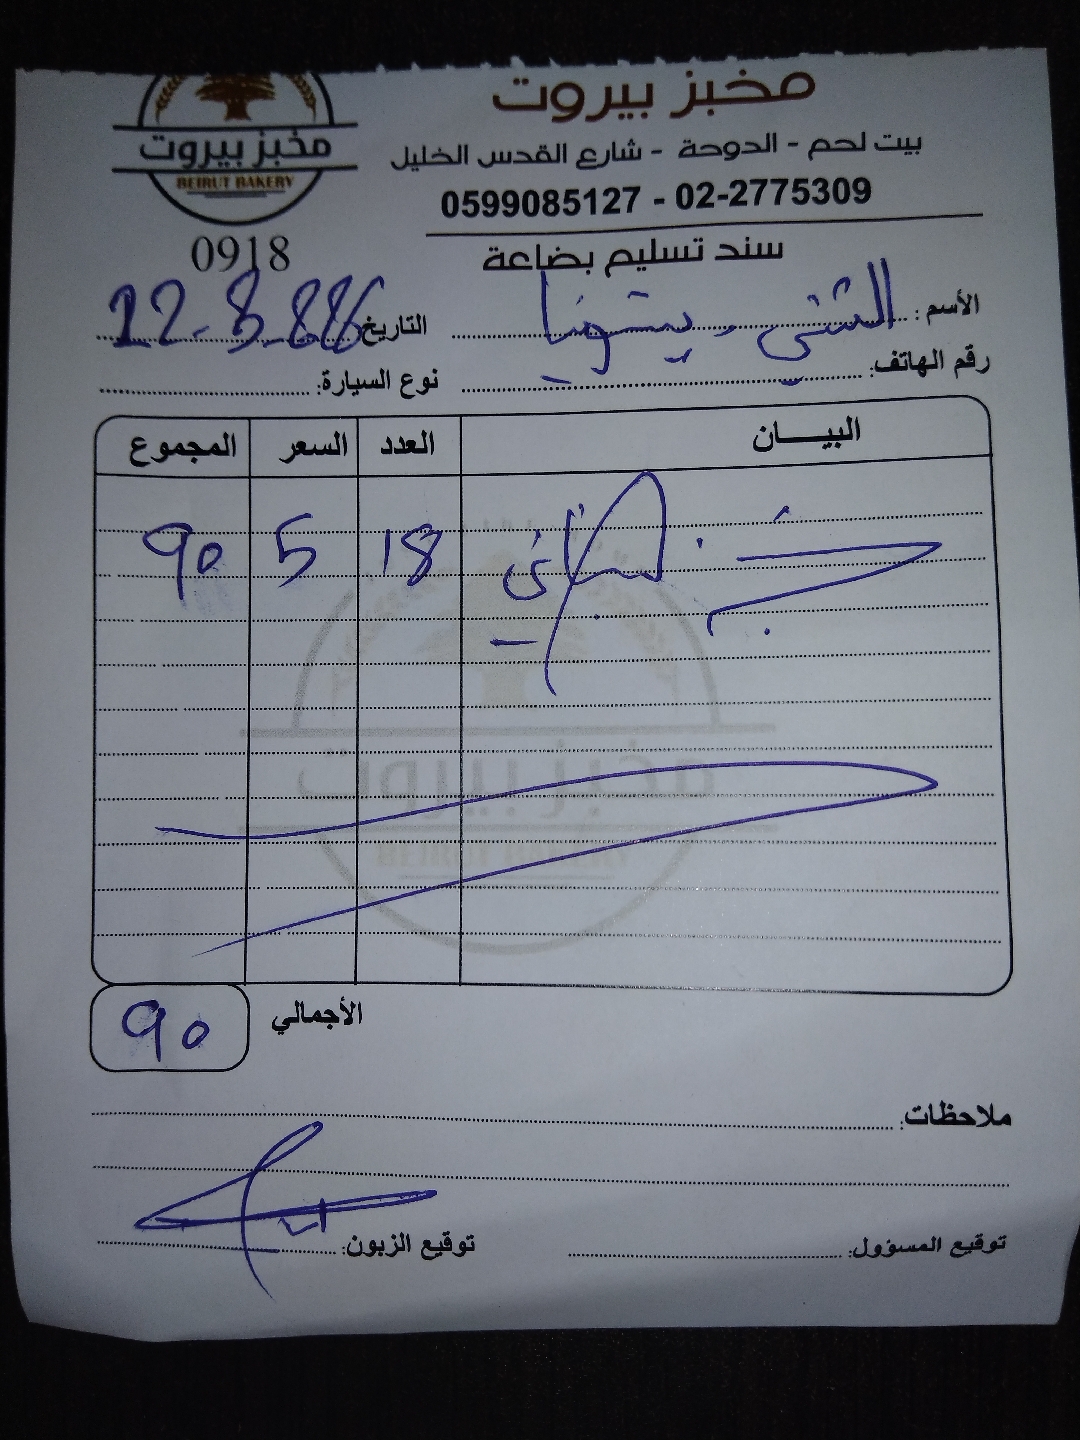 مخبز بيروت
BEIRUT BAKERY
مخبز بيروت
بيت لحم - الدوحة - شارع القدس الخليل
0599085127 - 02-2775309
0918
سند تسليم بضاعة
الأسم:
التاريخ
رقم الهاتف:
نوع السيارة:
البيـــــان العدد السعر المجموع
18 5 90
مخبز بيروت
BEIRUT BAKERY
الأجمالي 90
ملاحظات:
توقيع المسؤول: توقيع الزبون: